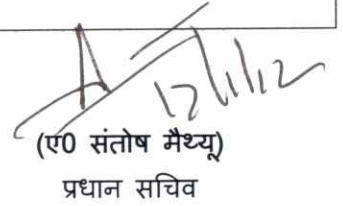 17/1/12
(ए0 संतोष मैथ्यू)
प्रधान सचिव